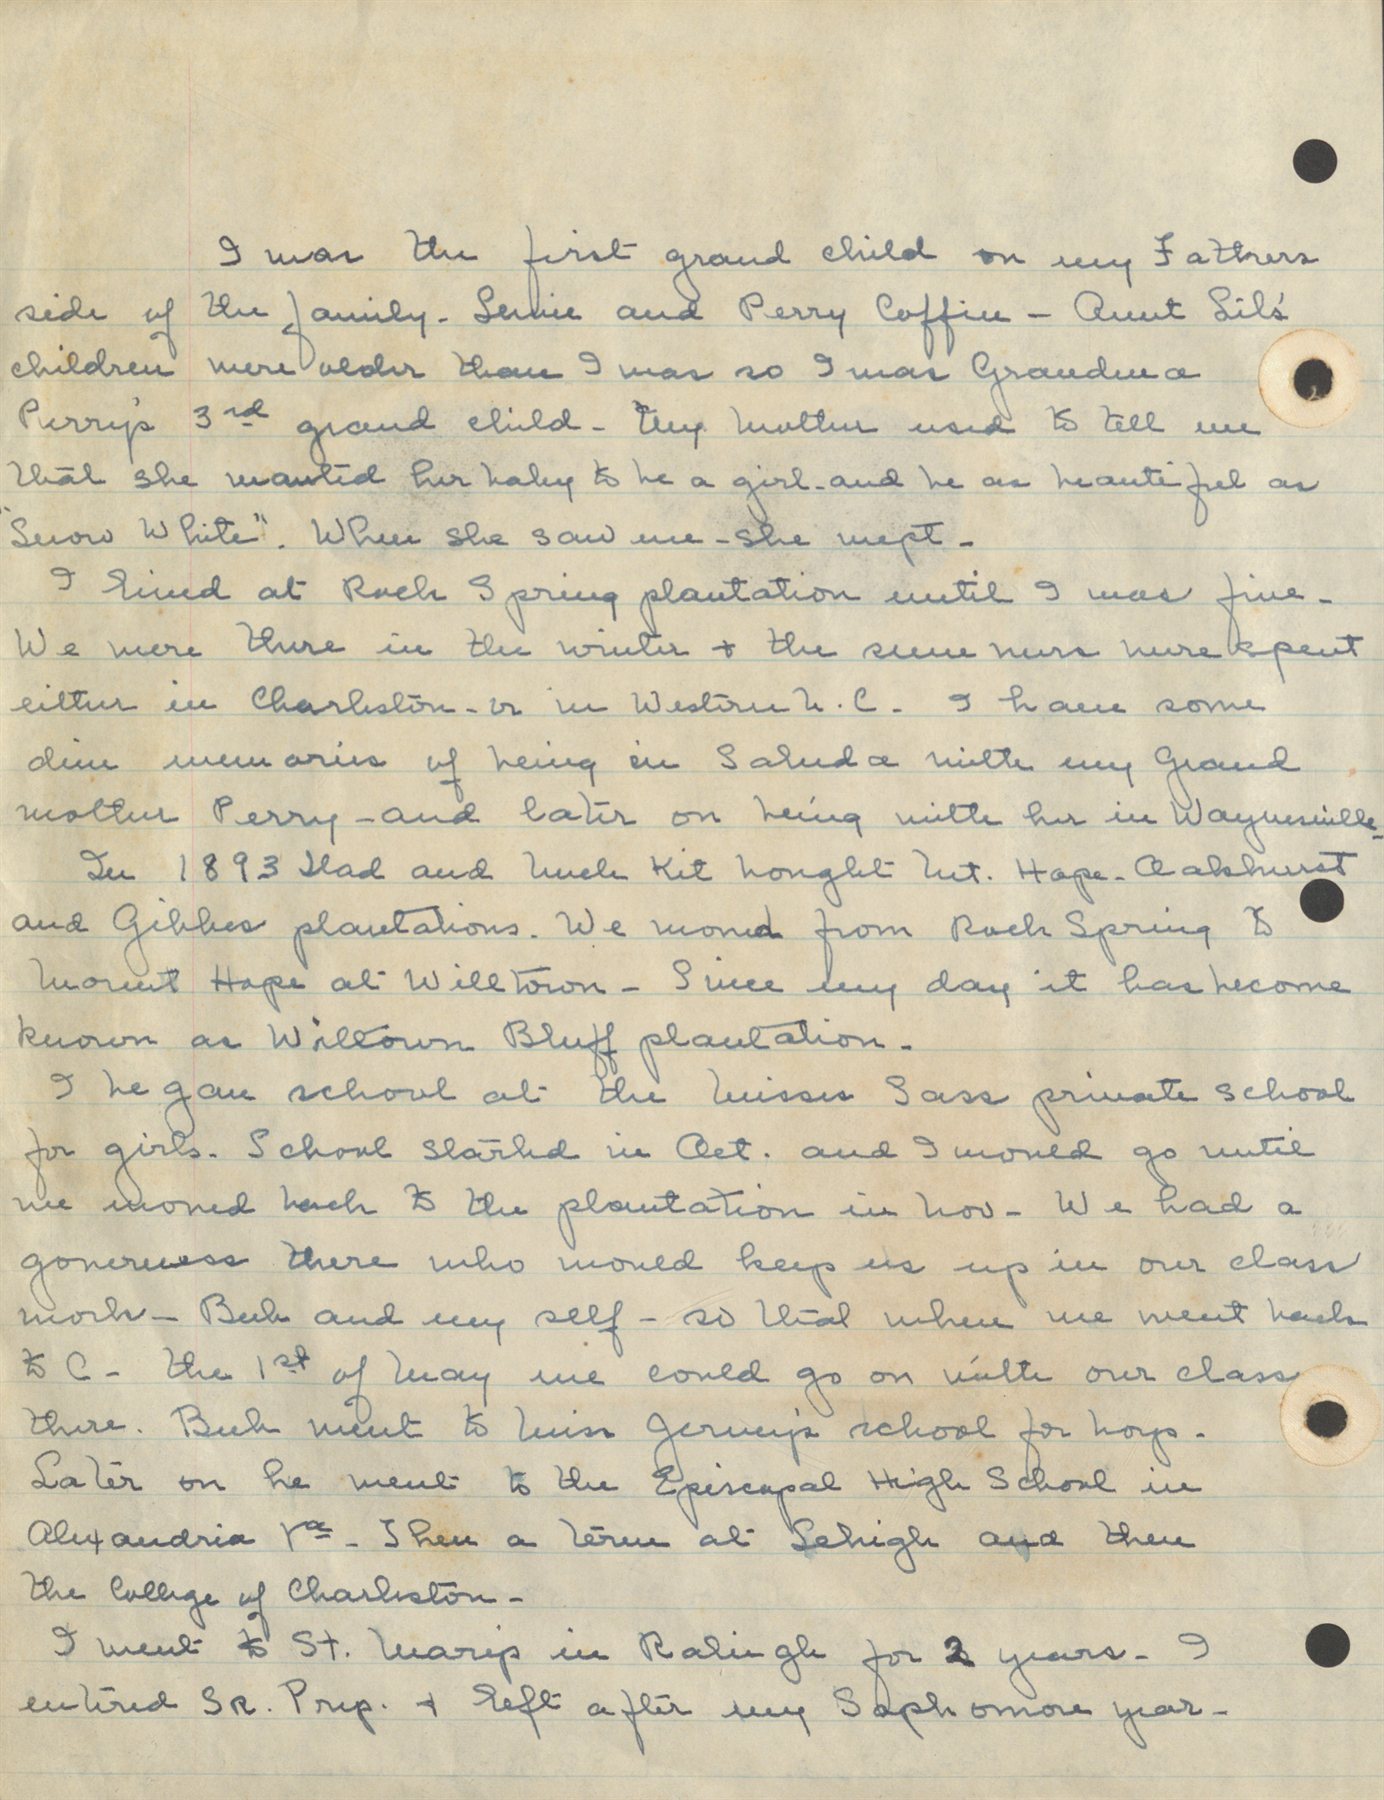 I was the first grand child on my Fathers
side of the family - Lewie and Perry Coffin - Aunt Lil's
children were older than I was so I was Grandma
Perry's 3rd grand child - My Mother used to tell me
that she wanted her baby to be a girl - and be as beautiful as
"Snow White". When she saw me - she wept -
I lived at Rock Spring plantation until I was five -
We were there in the winter + the summers were spent
either in Charleston - or in Western N.C. - I have some
dim memories of being in Saluda with my Grand
mother Perry - and later on being with her in Waynesville -
In 1893 Dad and Uncle Kit bought Mt. Hope - Oakhurst
and Gibbes plantations. We moved from Rock Spring to
Mount Hope at Willtown - Since my day it has become
known as Willtown Bluff plantation -
I began school at the Misses Sass private school
for girls. School started in Oct. and I would go until
we moved back to the plantation in Nov - We had a
governess there who would keep us up in our class
work - Buh and my self - so that when we went back
to C - the 1st of May we could go on with our class
there. Buh went to Miss Gervey's school for boys -
Later on he went to the Episcopal High School in
Alexandria Va - Then a term at Lehigh and then
the College of Charleston -
I went to St. Mary's in Raleigh for 2 years - I
entered Sr. Prep. + left after my Sophomore year -